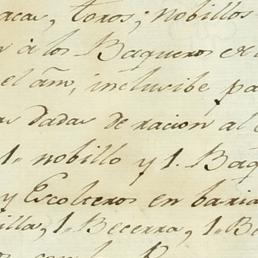 aca, toros; nobillos
à los Baqueros de
el año, inclusibe pa
as dadas de racion al
1. nobillo y 1. Baq
y Escolteros en baria
illa, 1. Becerra, 1. Be